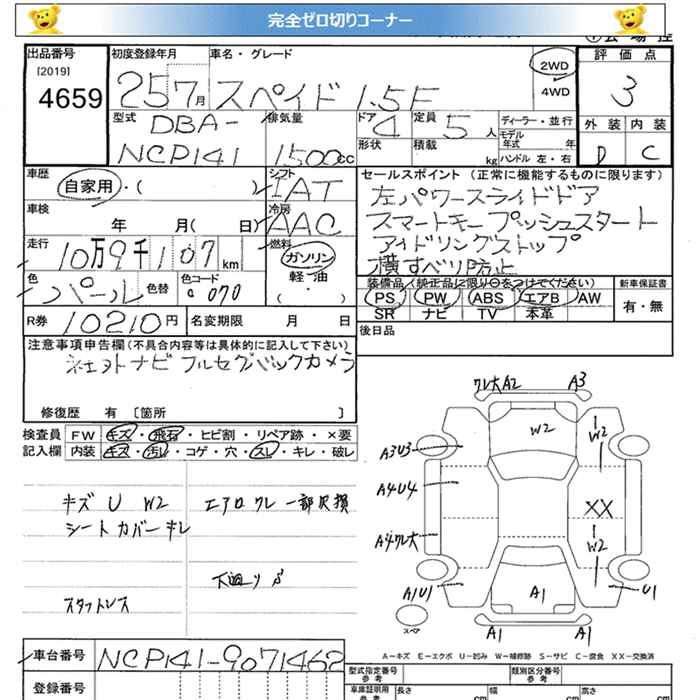 完全ゼロ切りコーナー
出品番号 初度登録年月 車名・グレード 評価点
[2019]
4659 25 7月 スペイド 1.5F 2WD 3
4WD
型式 DBA- 排気量 ドア 4 定員 5人 ディーラー・並行 外装 内装
モデル年式 年
NCP141 1500cc 形状 積載 kg ハンドル 左・右 D C
車歴 自家用・( ) シフト IAT セールスポイント (正常に機能するものに限ります)
左パワースライドドア
車検 年 月( 日) 冷房 AAC スマートキー プッシュスタート
走行 10万9千107km 燃料 ガソリン アイドリングストップ
軽・油 横すべり防止
色 パール 色替 色コード 070 ( ・ ) 装備品(純正品に限り○をつけてください) 新車保証書
PS PW ABS エアB AW 有・無
SR ナビ TV 本革
R券 10210円 名変期限 月 日 後日品
注意事項申告欄(不具合内容等は具体的に記入して下さい)
ナビ フルセグ バックカメラ
修復歴 有 [箇所 ]
検査員 FW キズ・飛石・ヒビ割・リペア跡・×要
記入欄 内装 キズ・汚レ・コゲ・穴・スレ・キレ・破レ
キズ U W2 エアロ ワレ 一部欠損
シートカバー キレ
下廻りS
スタットレス
ワレ大A2 A3
W2 W2
A3U3
A4U4 XX
A4ワレ大 W2
A1U1 A1 U1
スペア A1 A1
A-キズ E-エクボ U-凹み W-補修跡 S-サビ C-腐食 XX-交換済
車台番号 NCP141-9071462
型式指定番号 参考 類別区分番号 参考
登録番号 車庫証明用 参考 長さ cm 幅 cm 高さ cm